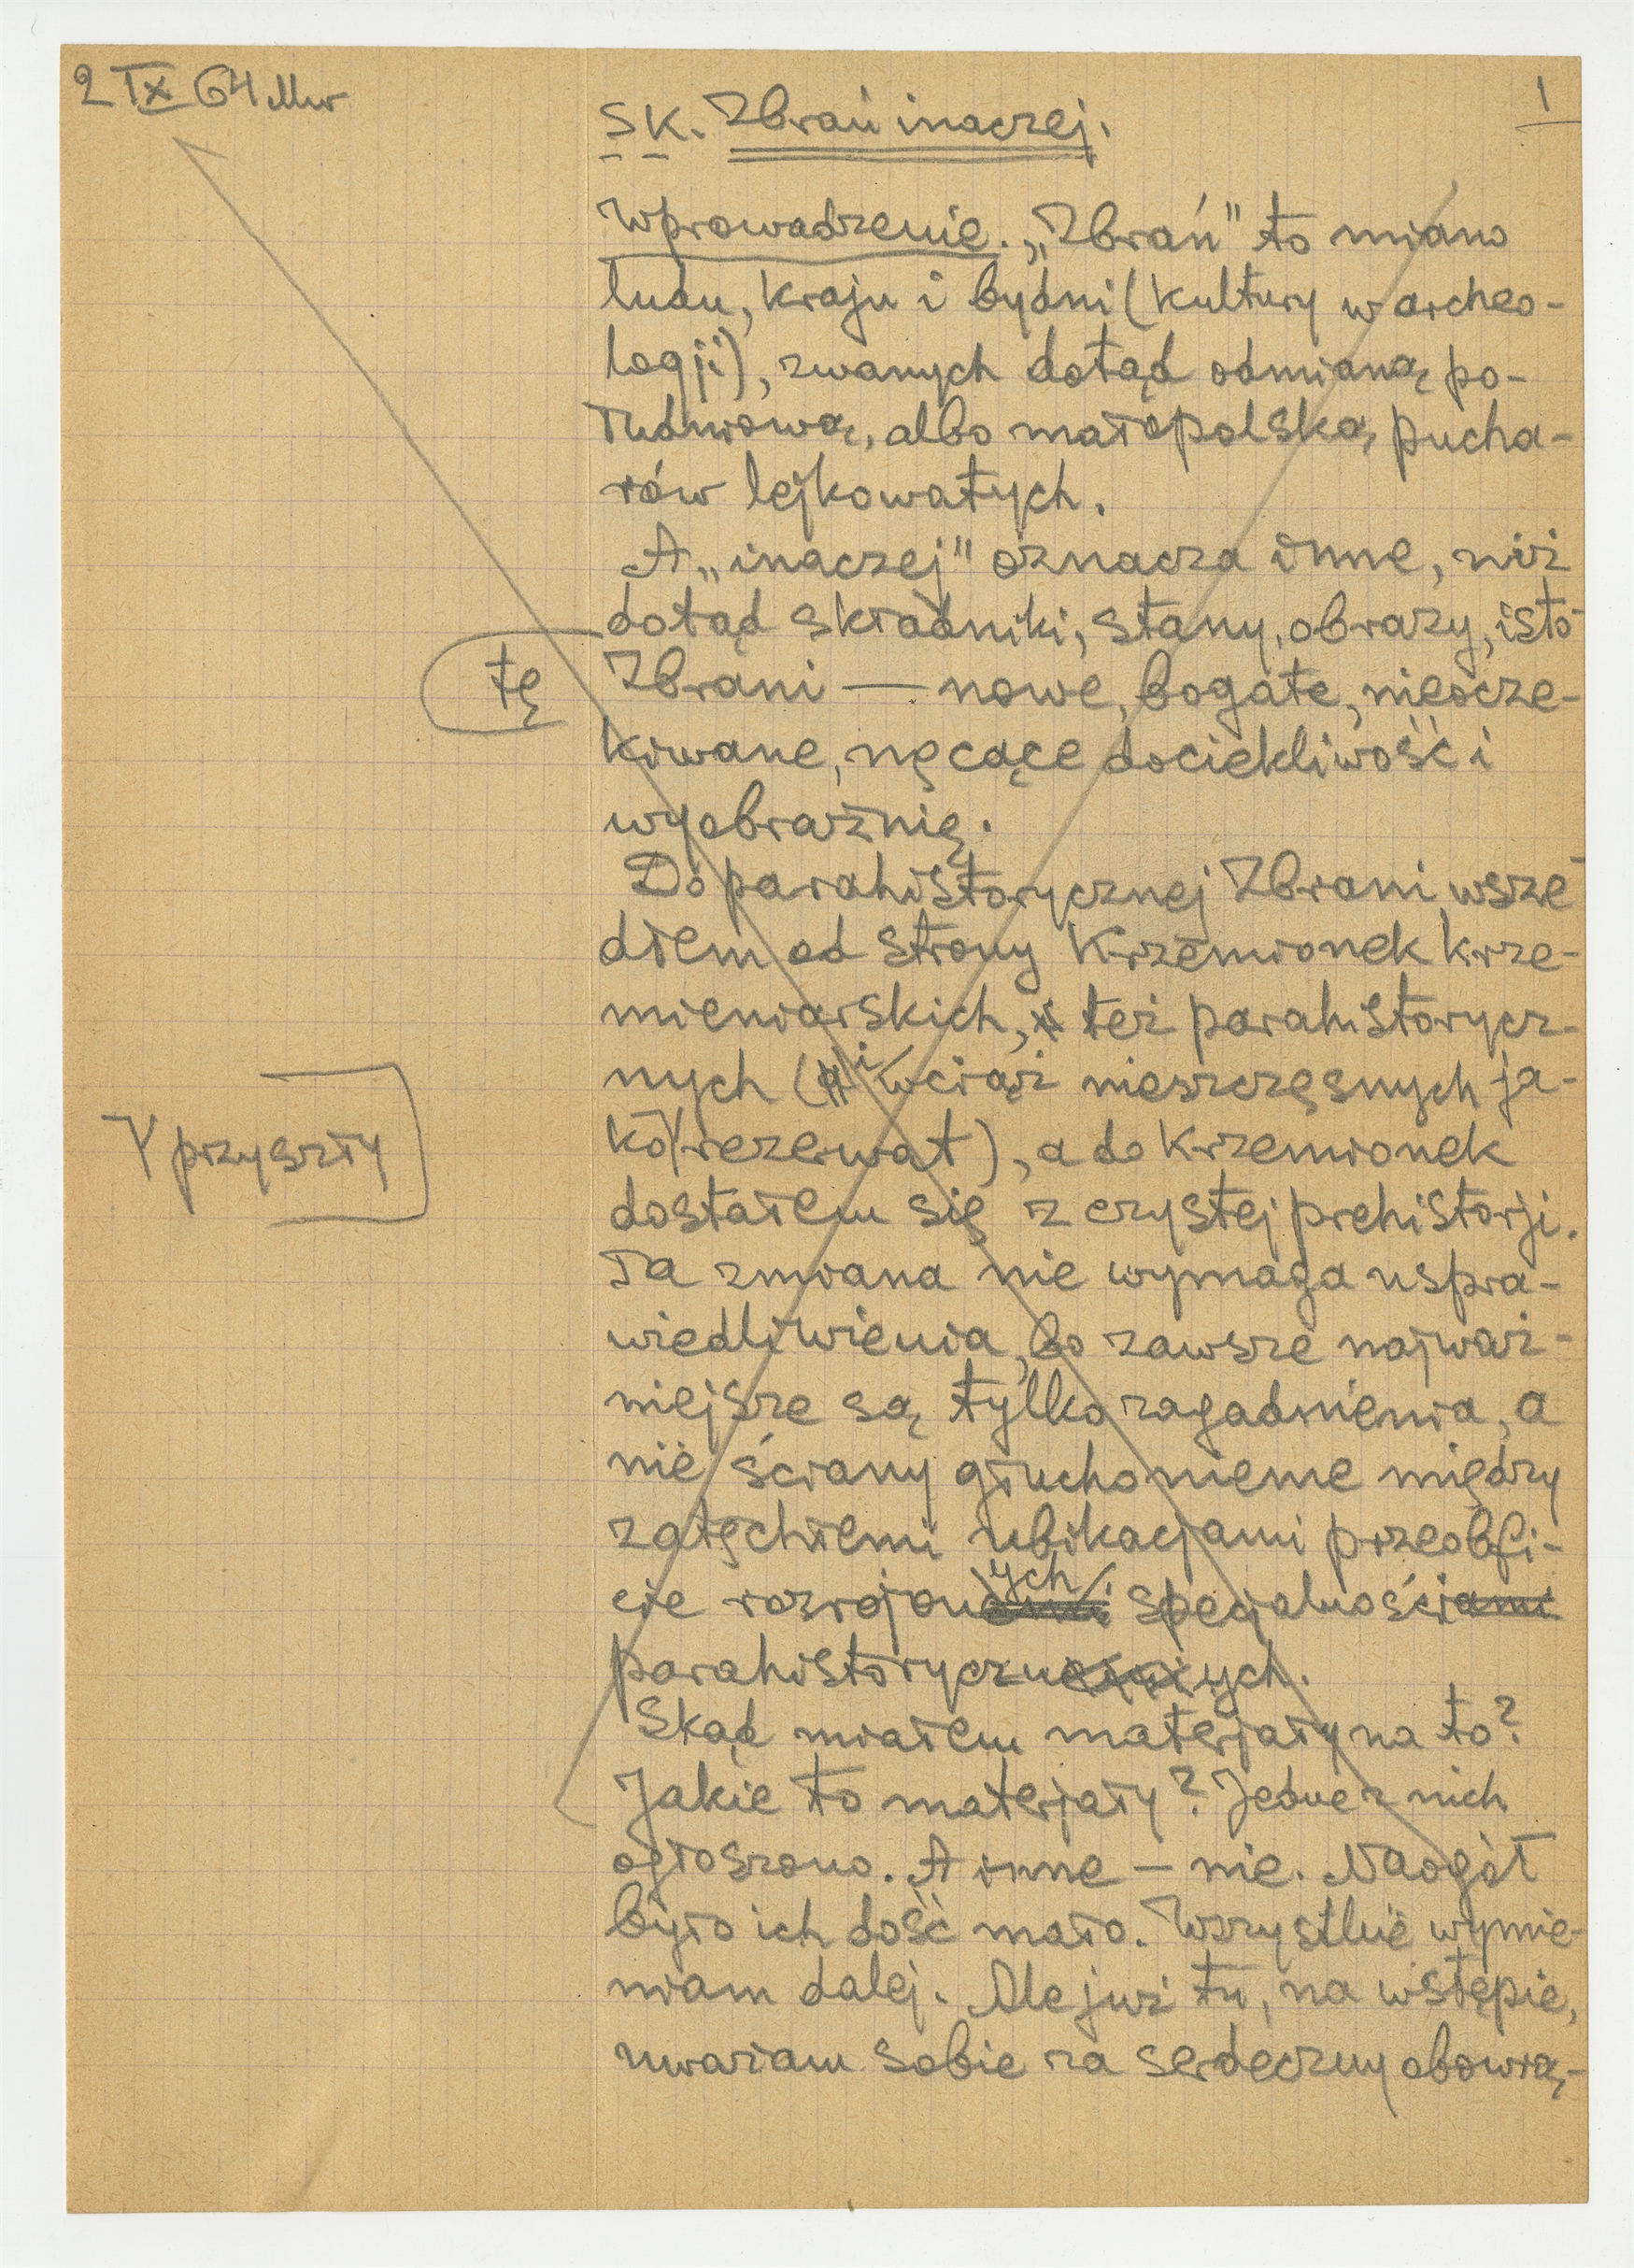 2 IX 64 Mw
1
SK. Zbrań inaczej.
Wprowadzenie. „Zbrań" to miano
ludu, kraju i bydni (kultury w archeo-
logji), zwanych dotąd odmianą po-
łudniową, albo małopolską pucha-
rów lejkowatych.
A „inaczej" oznacza inne, niż
dotąd składniki, stany, obrazy, isto-
tę
Zbrani — nowe, bogate, nieocze-
kiwane, nęcące dociekliwość i
wyobraźnię.
Do parahistorycznej Zbrani wsze-
dłem od strony Krzemionek krze-
mieniarskich, też parahistorycz-
nych (i wciąż nieszczęsnych ja-
ko rezerwat), a do Krzemionek
przyszły
dostałem się z czystej prehistorji.
Ta zmiana nie wymaga uspra-
wiedliwienia, bo zawsze najważ-
niejsze są tylko zagadnienia, a
nie ściany głuchonieme między
zatęchłemi ubikacjami przeobfi-
cie rozrojonych specjalności
parahistorycznych.
Skąd miałem materjały na to?
Jakie to materjały? Jedne z nich
ogłoszono. A inne — nie. Naogół
było ich dość mało. Wszystkie wymie-
niam dalej. Ale już tu, na wstępie,
uważam sobie za serdeczny obowią-